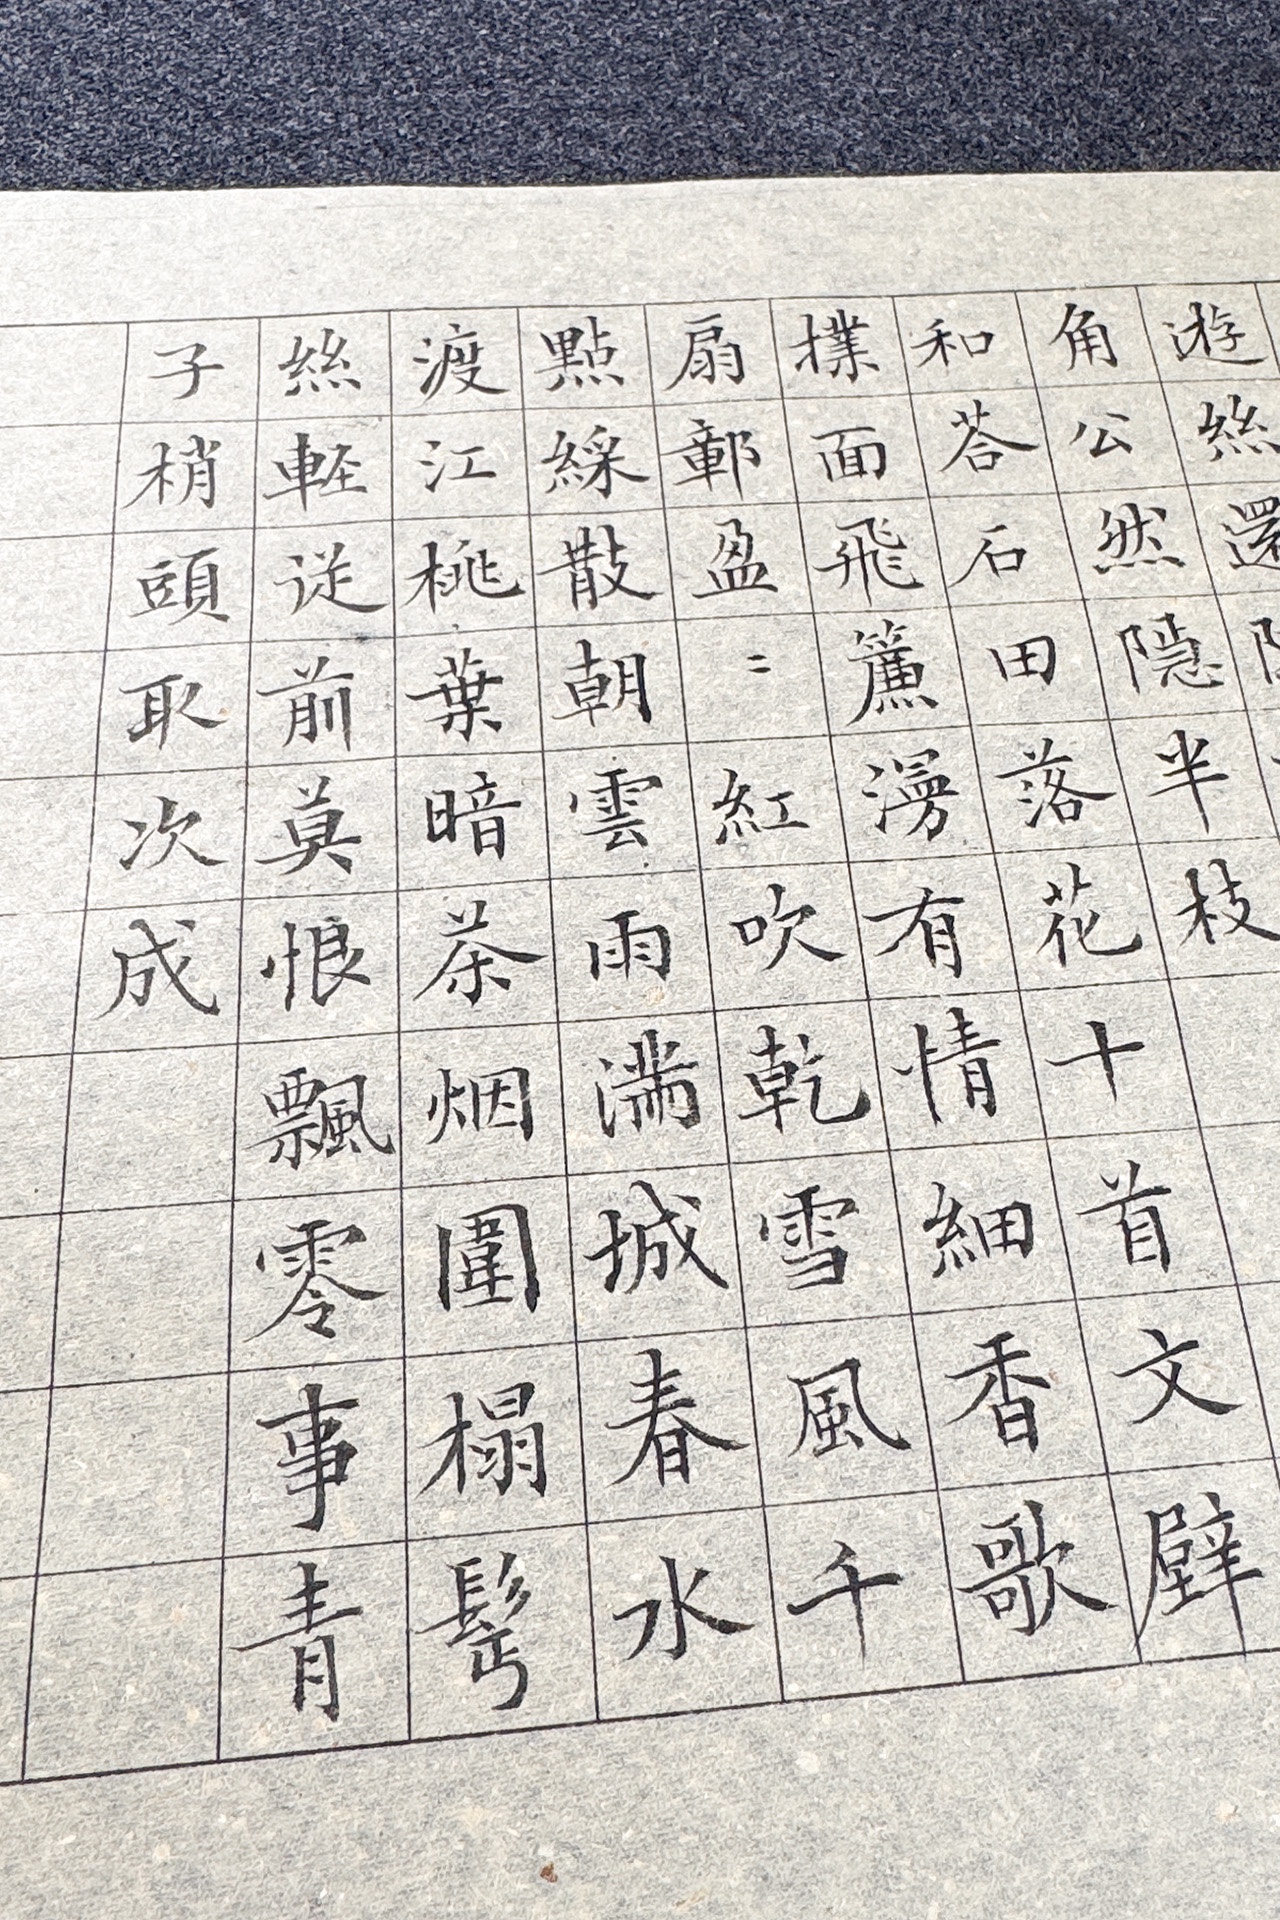 遊絲還
角公然隱半枝
和荅石田落花十首文壁
撲面飛簾漫有情細香歌
扇鄣盈〻紅吹乾雪風千
點綵散朝雲雨滿城春水
渡江桃葉暗茶烟圍榻鬂
絲輕從前莫恨飄零事青
子梢頭取次成